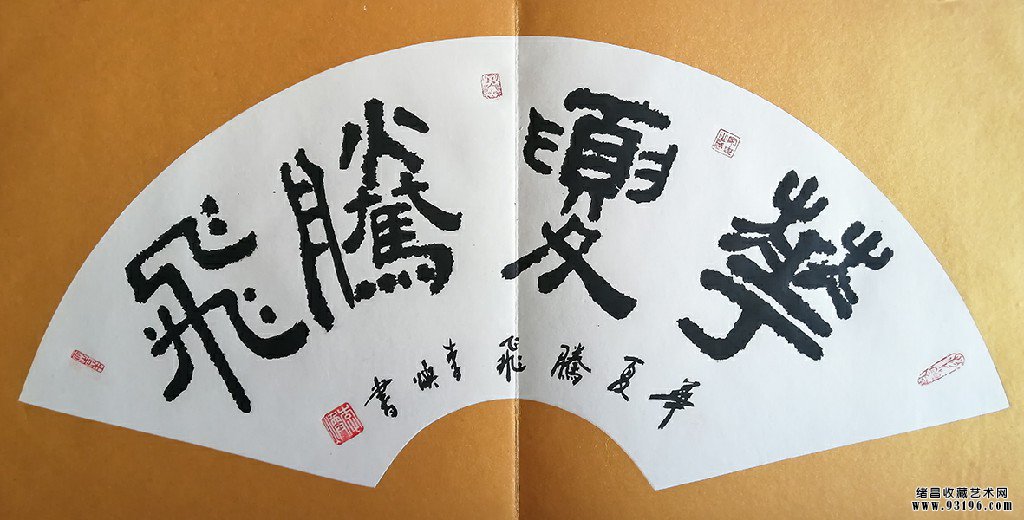 華夏騰飛
華夏騰飛李煥書
绪昌收藏艺术网
www.93196.com